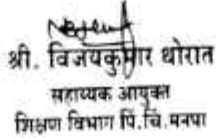 श्री. विजयकुमार थोरात
सहाय्यक आयुक्त
शिक्षण विभाग पिं.चिं.मनपा